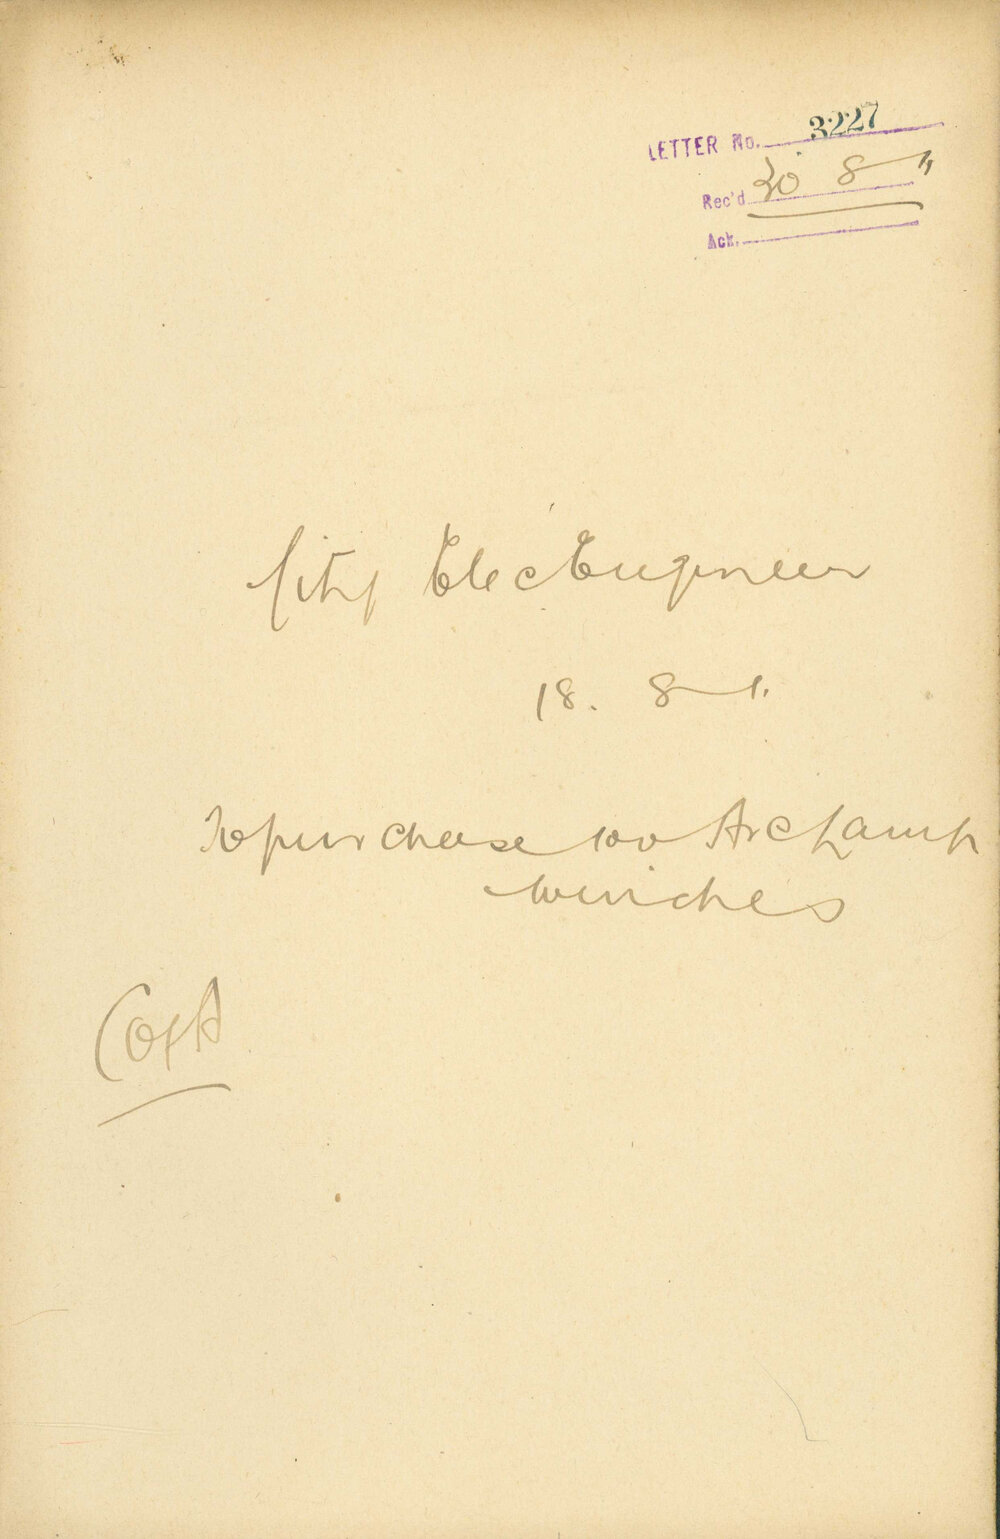 LETTER No. 3227
Rec'd 20 8 11
Ack.
City Elec Engineer
18. 8 11
To purchase 100 Arc Lamp
Winches